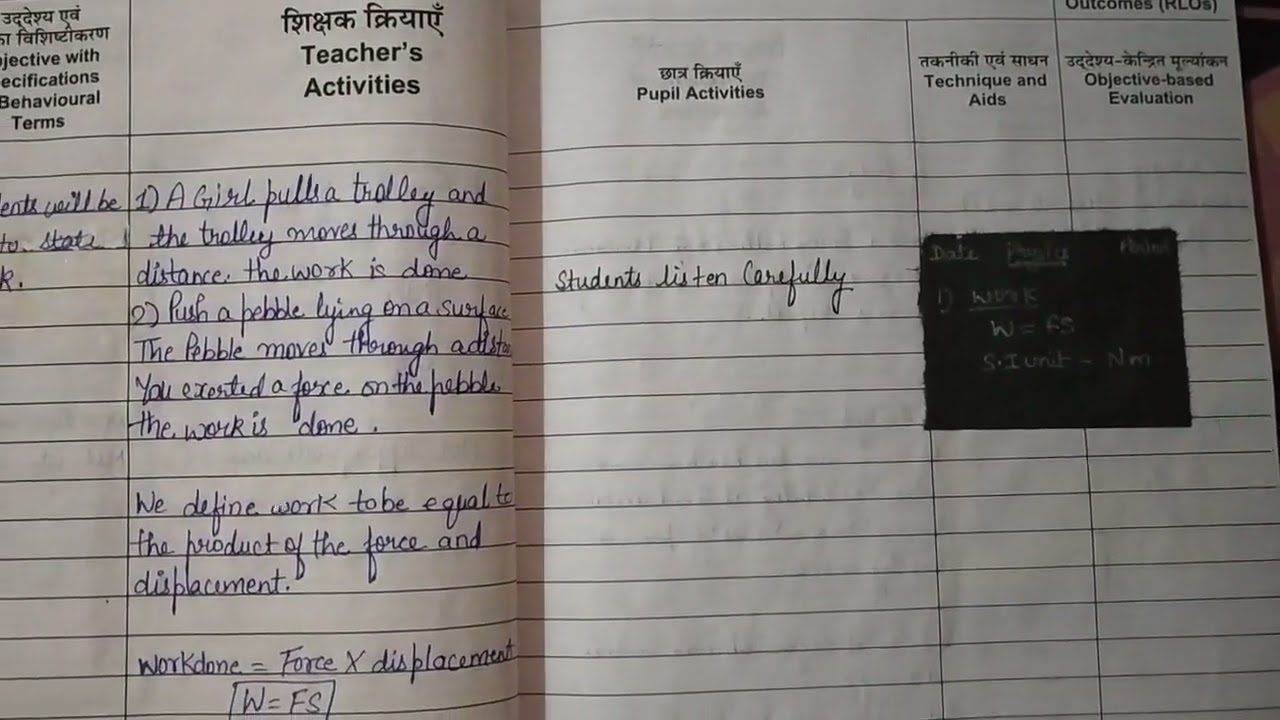 उद्देश्य एवं
का विशिष्टीकरण
jective with
ecifications
Behavioural
Terms
शिक्षक क्रियाएँ
Teacher's
Activities
छात्र क्रियाएँ
Pupil Activities
तकनीकी एवं साधन
Technique and
Aids
Outcomes (RLOs)
उद्देश्य-केन्द्रित मूल्यांकन
Objective-based
Evaluation
ents will be
to state
k.
1) A Girl pulls a trolley and
the trolley moves through a
distance. the work is done
2) Push a pebble lying on a surface
The Pebble moves through a dista
You exerted a force on the pebble
the work is done.
We define work to be equal to
the product of the force and
displacement.
workdone = Force X displacement
W = FS
Students listen Carefully
Date Physics Period
1) WORK
W = FS
S.I unit - Nm